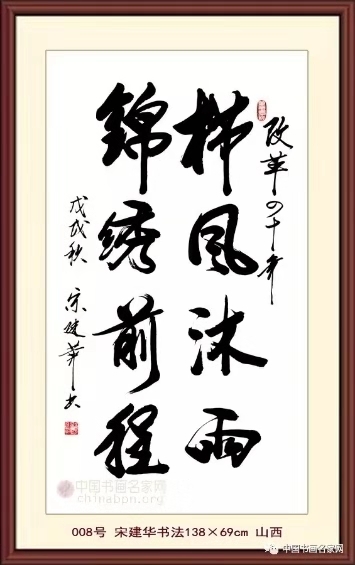 改革四十年
栉风沐雨
锦绣前程
戊戌秋 宋建华书
中国书画名家网
chinabpn.org
008号 宋建华书法138×69cm 山西
中国书画名家网